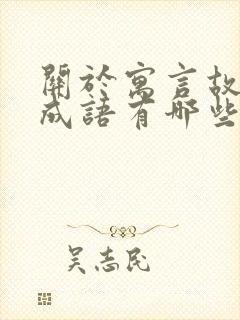 關於寓言故
成語有哪些
吴志民